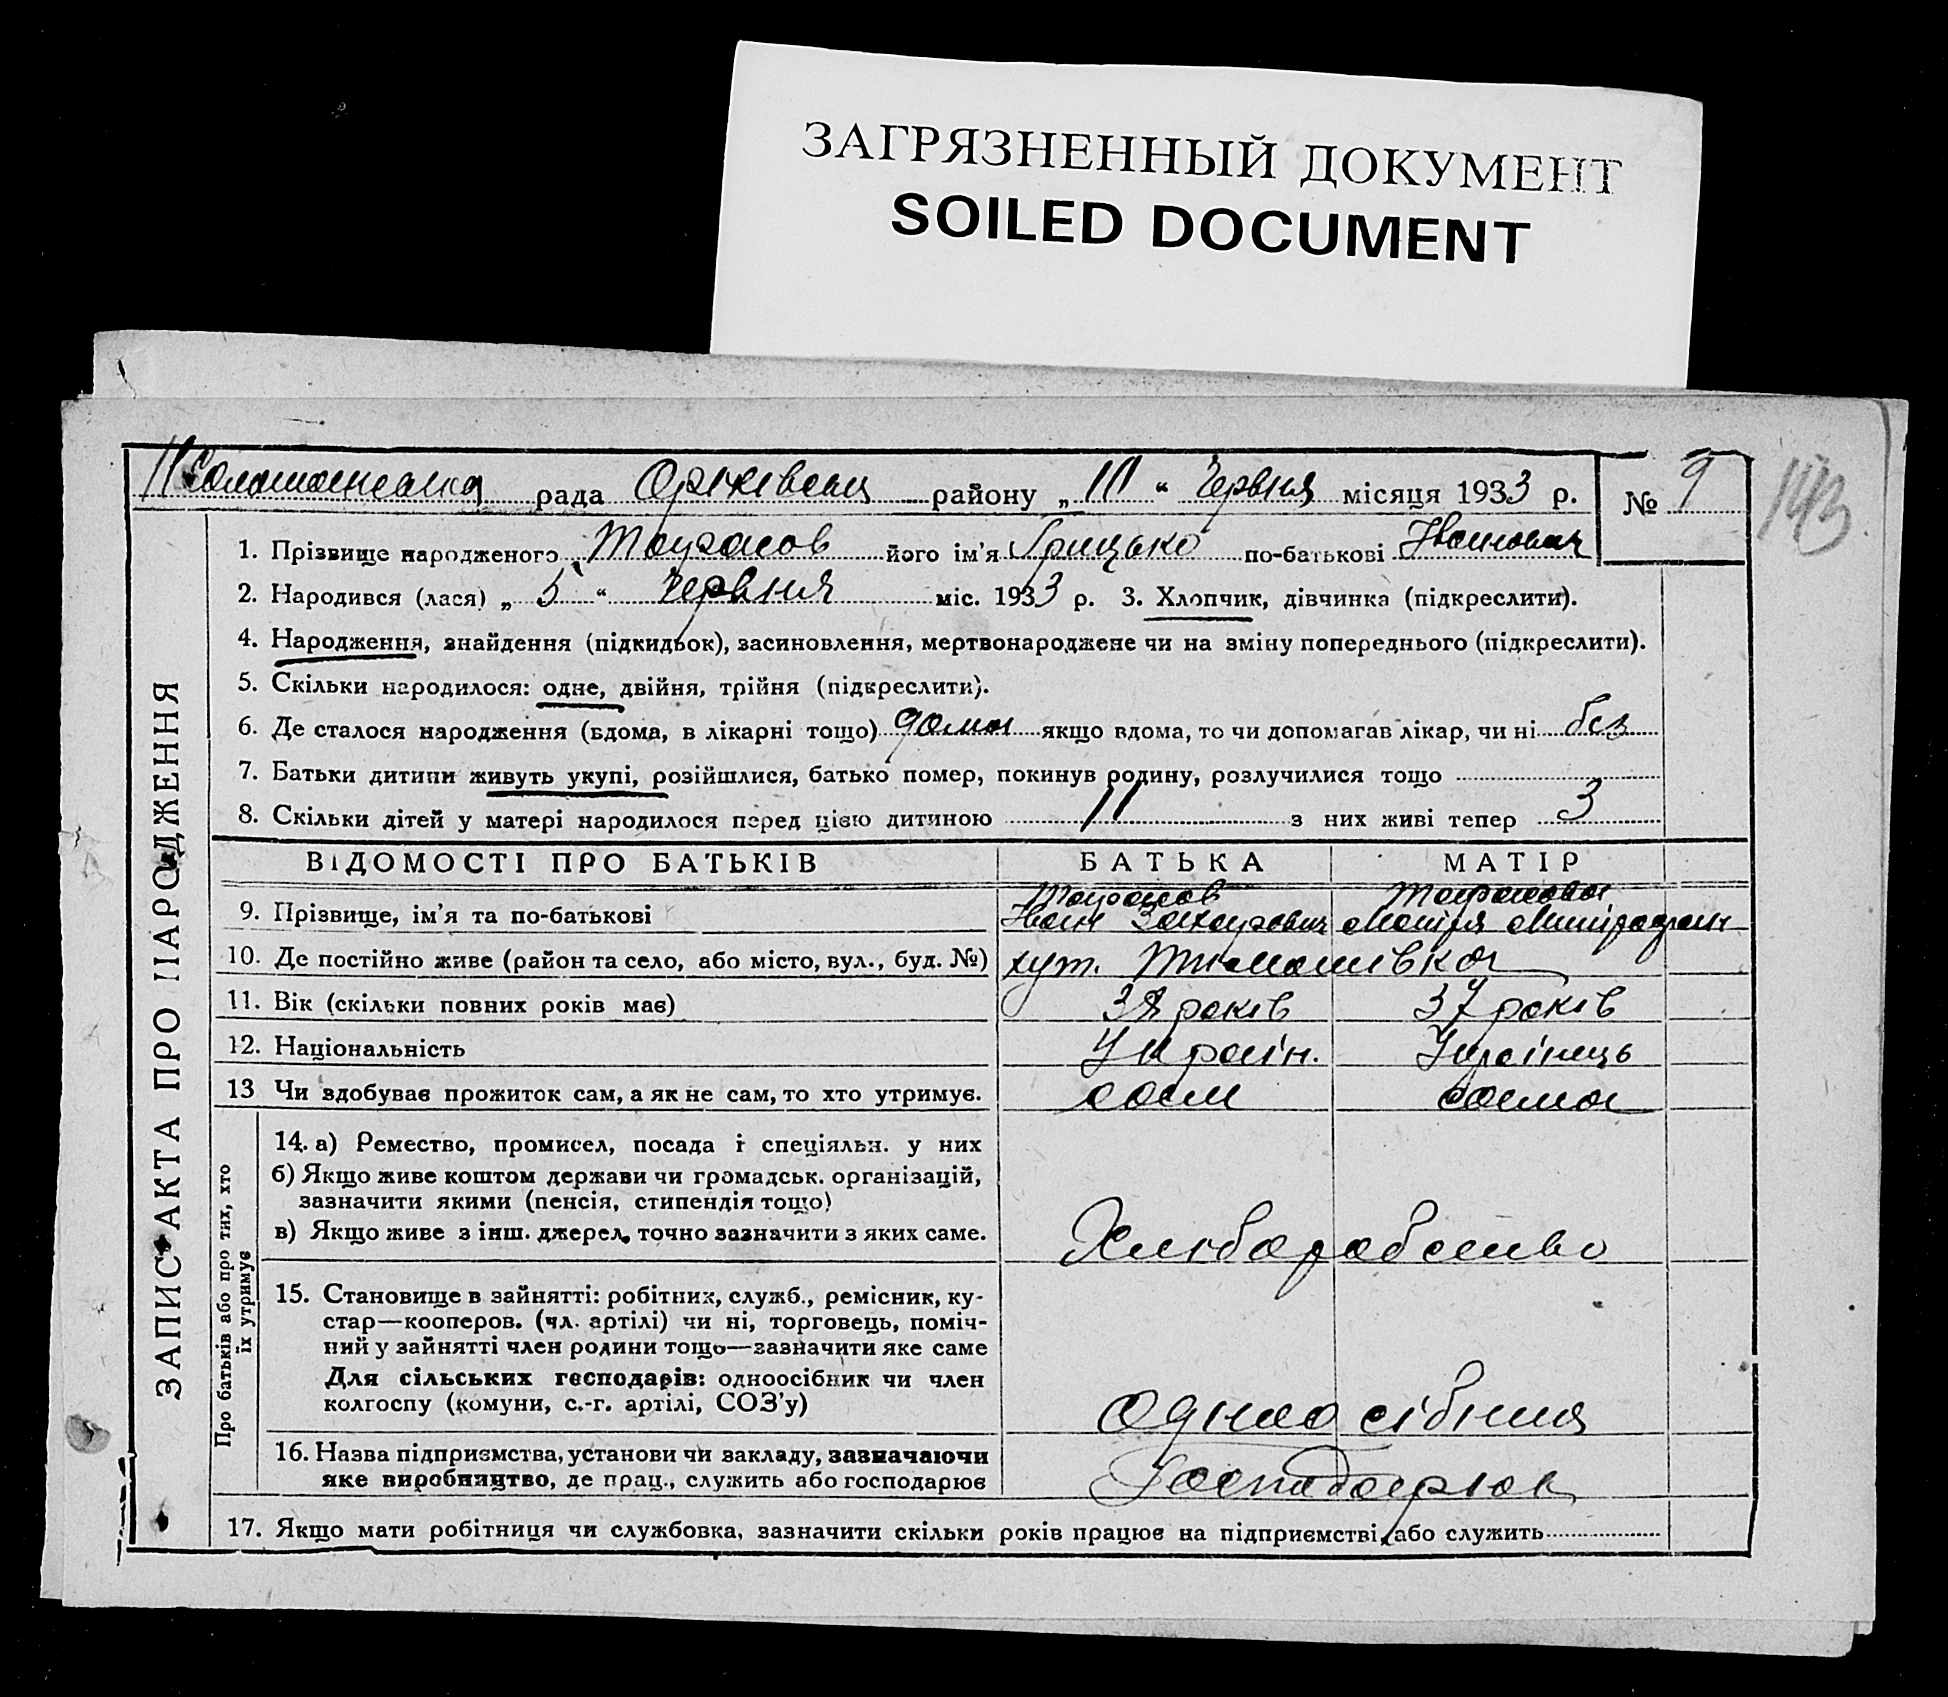 ЗАГРЯЗНЕННЫЙ ДОКУМЕНТ
SOILED DOCUMENT
рада району „ “ Червня місяця 1933 р. № 9
143
ЗАПИС АКТА ПРО НАРОДЖЕННЯ
1. Прізвище народженого його ім'я Грицько по-батькові Іванович
2. Народився (лася) „ 5 “ Червня міс. 1933 р. 3. Хлопчик, дівчинка (підкреслити).
4. Народження, знайдення (підкидьок), засиновлення, мертвонароджене чи на зміну попереднього (підкреслити).
5. Скільки народилося: одне, двійня, трійня (підкреслити).
6. Де сталося народження (вдома, в лікарні тощо) дома якщо вдома, то чи допомагав лікар, чи ні без
7. Батьки дитини живуть укупі, розійшлися, батько помер, покинув родину, розлучилися тощо
8. Скільки дітей у матері народилося перед цією дитиною 11 з них живі тепер 3
ВІДОМОСТІ ПРО БАТЬКІВ БАТЬКА МАТІР
9. Прізвище, ім'я та по-батькові Іван Захарович
10. Де постійно живе (район та село, або місто, вул., буд. №) хут. Тимошівка
11. Вік (скільки повних років має) 38 років 37 років
12. Національність Україн. Українець
13 Чи здобуває прожиток сам, а як не сам, то хто утримує. сам сама
Про батьків або про тих, хто їх утримує
14. а) Ремество, промисел, посада і спеціяльн. у них
б) Якщо живе коштом держави чи громадськ. організацій,
зазначити якими (пенсія, стипендія тощо)
в) Якщо живе з інш. джерел, точно зазначити з яких саме. Хліборобство
15. Становище в зайнятті: робітник, служб., ремісник, ку-
стар—кооперов. (чл. артілі) чи ні, торговець, поміч-
ний у зайнятті член родини тощо—зазначити яке саме
Для сільських господарів: одноосібник чи член
колгоспу (комуни, с.-г. артілі, СОЗ'у)
16. Назва підприємства, установи чи закладу, зазначаючи
яке виробництво, де прац., служить або господарює
17. Якщо мати робітниця чи службовка, зазначити скільки років працює на підприємстві або служить